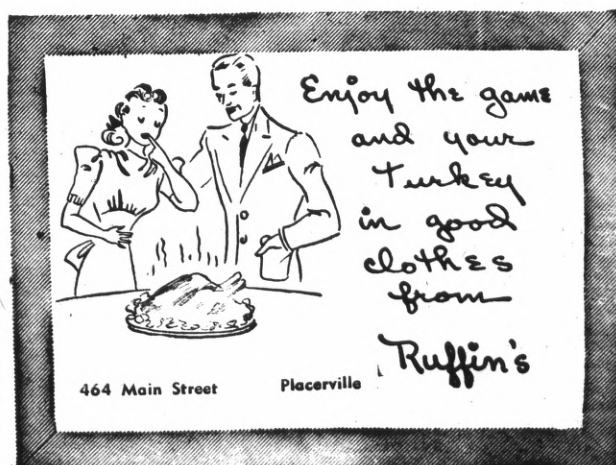 Enjoy the game
and your
Turkey
in good
clothes
from
Ruffin's
464 Main Street Placerville